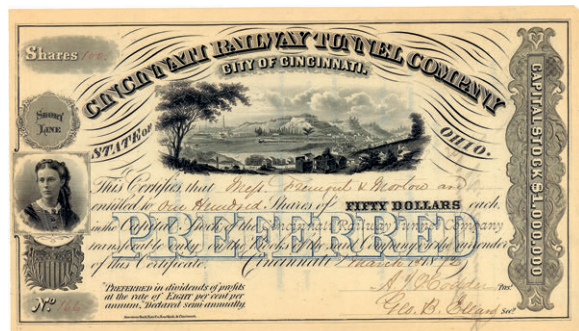 Shares 100.
CINCINNATI RAILWAY TUNNEL COMPANY
CITY OF CINCINNATI.
STATE OF OHIO.
SHORT LINE
CAPITAL STOCK $1,000,000
This Certifies that Mess. & Morlow are
entitled to One Hundred Shares of FIFTY DOLLARS each
in the Capital Stock of the Cincinnati Railway Tunnel Company
PREFERRED
transferable only on the Books of the said Company on the surrender
of this Certificate. Cincinnati March 187
PREFERRED in dividends of profits
at the rate of EIGHT per cent per
annum, Declared semi-annually.
Pres.
Nº 166
Geo. B. Secy